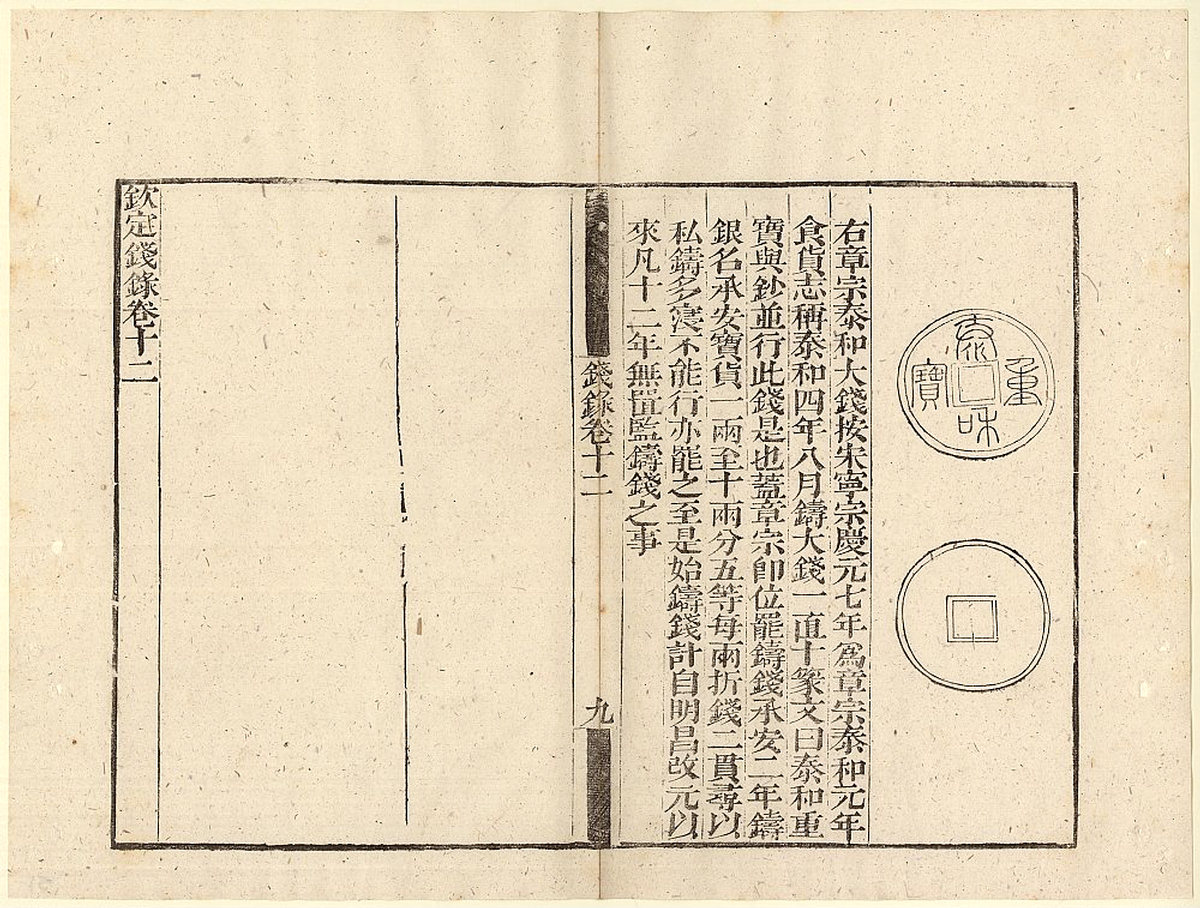 泰和重寶
右章宗泰和大錢按宋寧宗慶元七年爲章宗泰和元年
食貨志稱泰和四年八月鑄大錢一直十篆文曰泰和重
寶與鈔並行此錢是也蓋章宗卽位罷鑄錢承安二年鑄
銀名承安寶貨一兩至十兩分五等每兩折錢二貫尋以
私鑄多寖不能行亦罷之至是始鑄錢計自明昌改元以
來凡十二年無置監鑄錢之事
錢錄卷十二
九
欽定錢錄卷十二